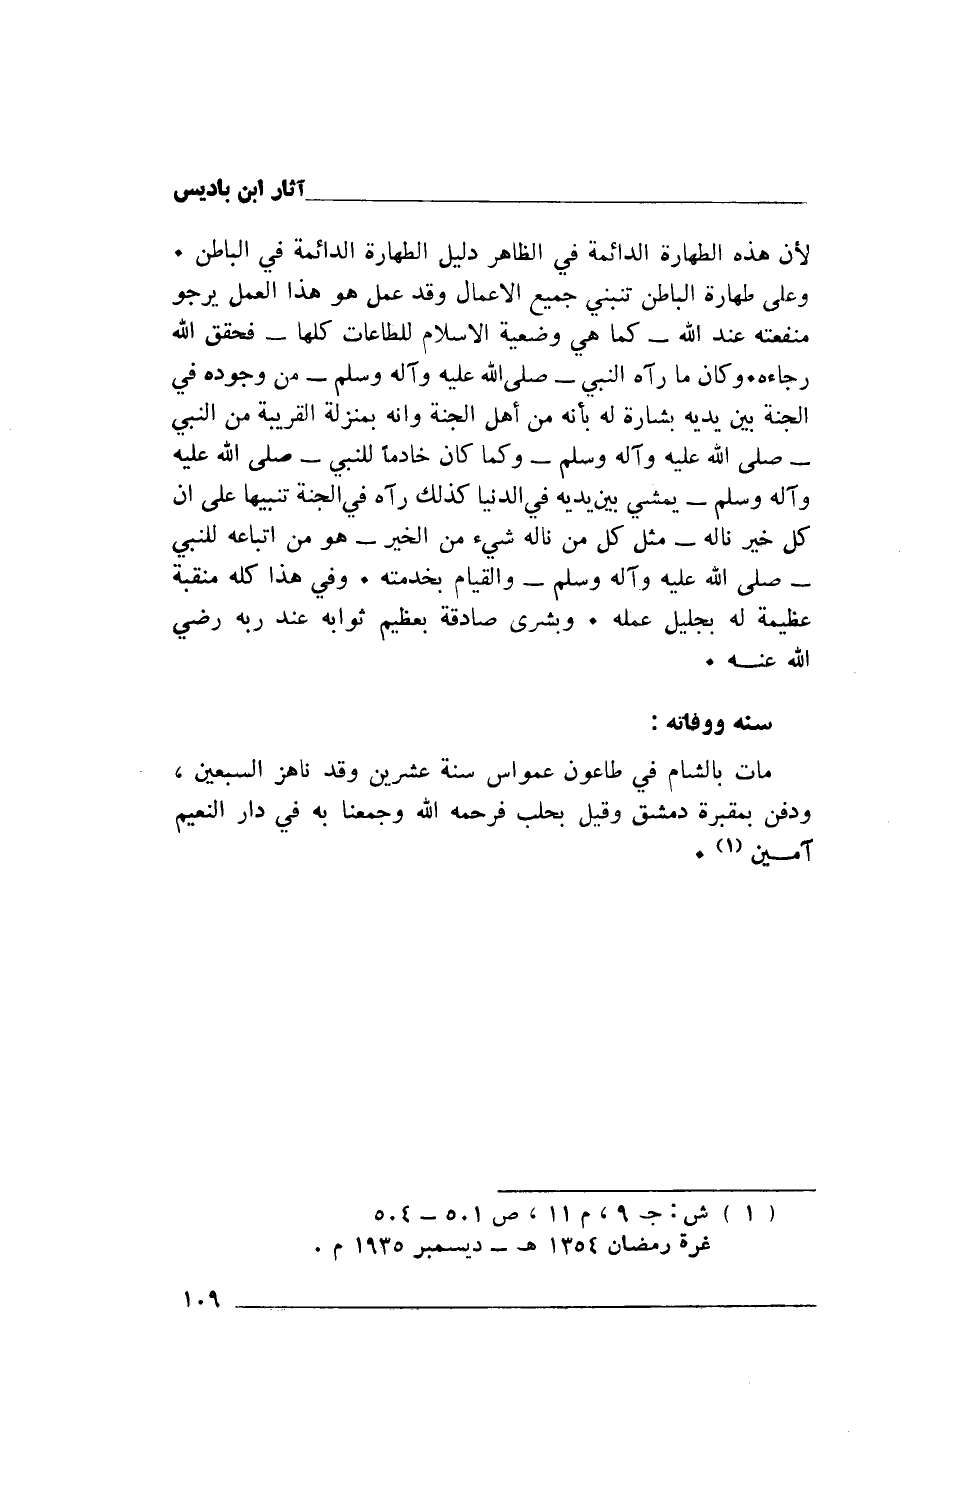 آثار ابن باديس
لأن هذه الطهارة الدائمة في الظاهر دليل الطهارة الدائمة في الباطن .
وعلى طهارة الباطن تنبني جميع الاعمال وقد عمل هو هذا العمل يرجو
منفعته عند الله ــ كما هي وضعية الاسلام للطاعات كلها ــ فحقق الله
رجاءه. وكان ما رآه النبي ــ صلى الله عليه وآله وسلم ــ من وجوده في
الجنة بين يديه بشارة له بأنه من أهل الجنة وانه بمنزلة القريبة من النبي
ــ صلى الله عليه وآله وسلم ــ وكما كان خادماً للنبي ــ صلى الله عليه
وآله وسلم ــ يمشي بين يديه في الدنيا كذلك رآه في الجنة تنبيها على ان
كل خير ناله ــ مثل كل من ناله شيء من الخير ــ هو من اتباعه للنبي
ــ صلى الله عليه وآله وسلم ــ والقيام بخدمته . وفي هذا كله منقبة
عظيمة له بجليل عمله . وبشرى صادقة بعظيم ثوابه عند ربه رضي
الله عنــه .
سنه ووفاته :
مات بالشام في طاعون عمواس سنة عشرين وقد ناهز السبعين ،
ودفن بمقبرة دمشق وقيل بحلب فرحمه الله وجمعنا به في دار النعيم
آمــين (١) .
( ١ ) ش : جـ ٩ ، م ١١ ، ص ٥٠١ ــ ٥٠٤
غرة رمضان ١٣٥٤ هـ ــ ديسمبر ١٩٣٥ م .
١٠٩